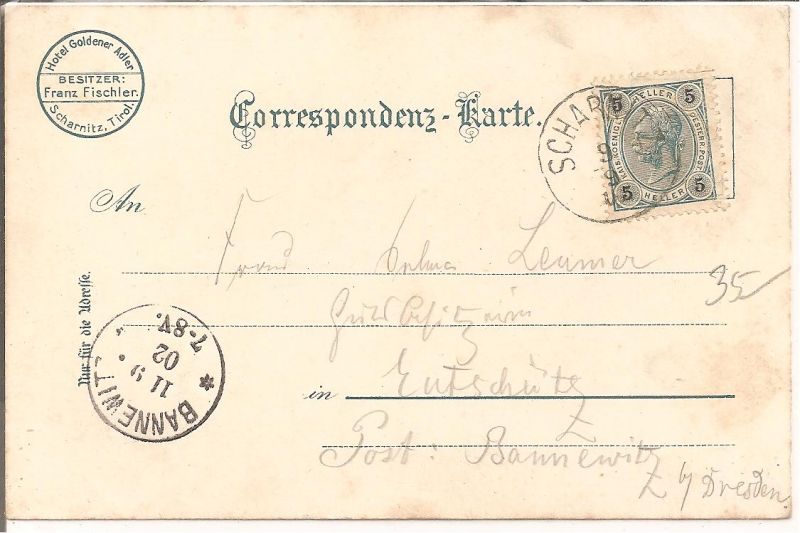 Hotel Goldener Adler
BESITZER:
Franz Fischler.
Scharnitz, Tirol.
Correspondenz-Karte.
SCHAR
9
9
5 HELLER 5
KAIS. KOENIGL. OESTERR. POST
5 HELLER 5
An
Frau Selma Leumer
Gutsbesitzerin
in Eutschütz
Post: Bannewitz
b/ Dresden
35
Nur für die Adresse.
* BANNEWIT
11 9
02
7-8V.